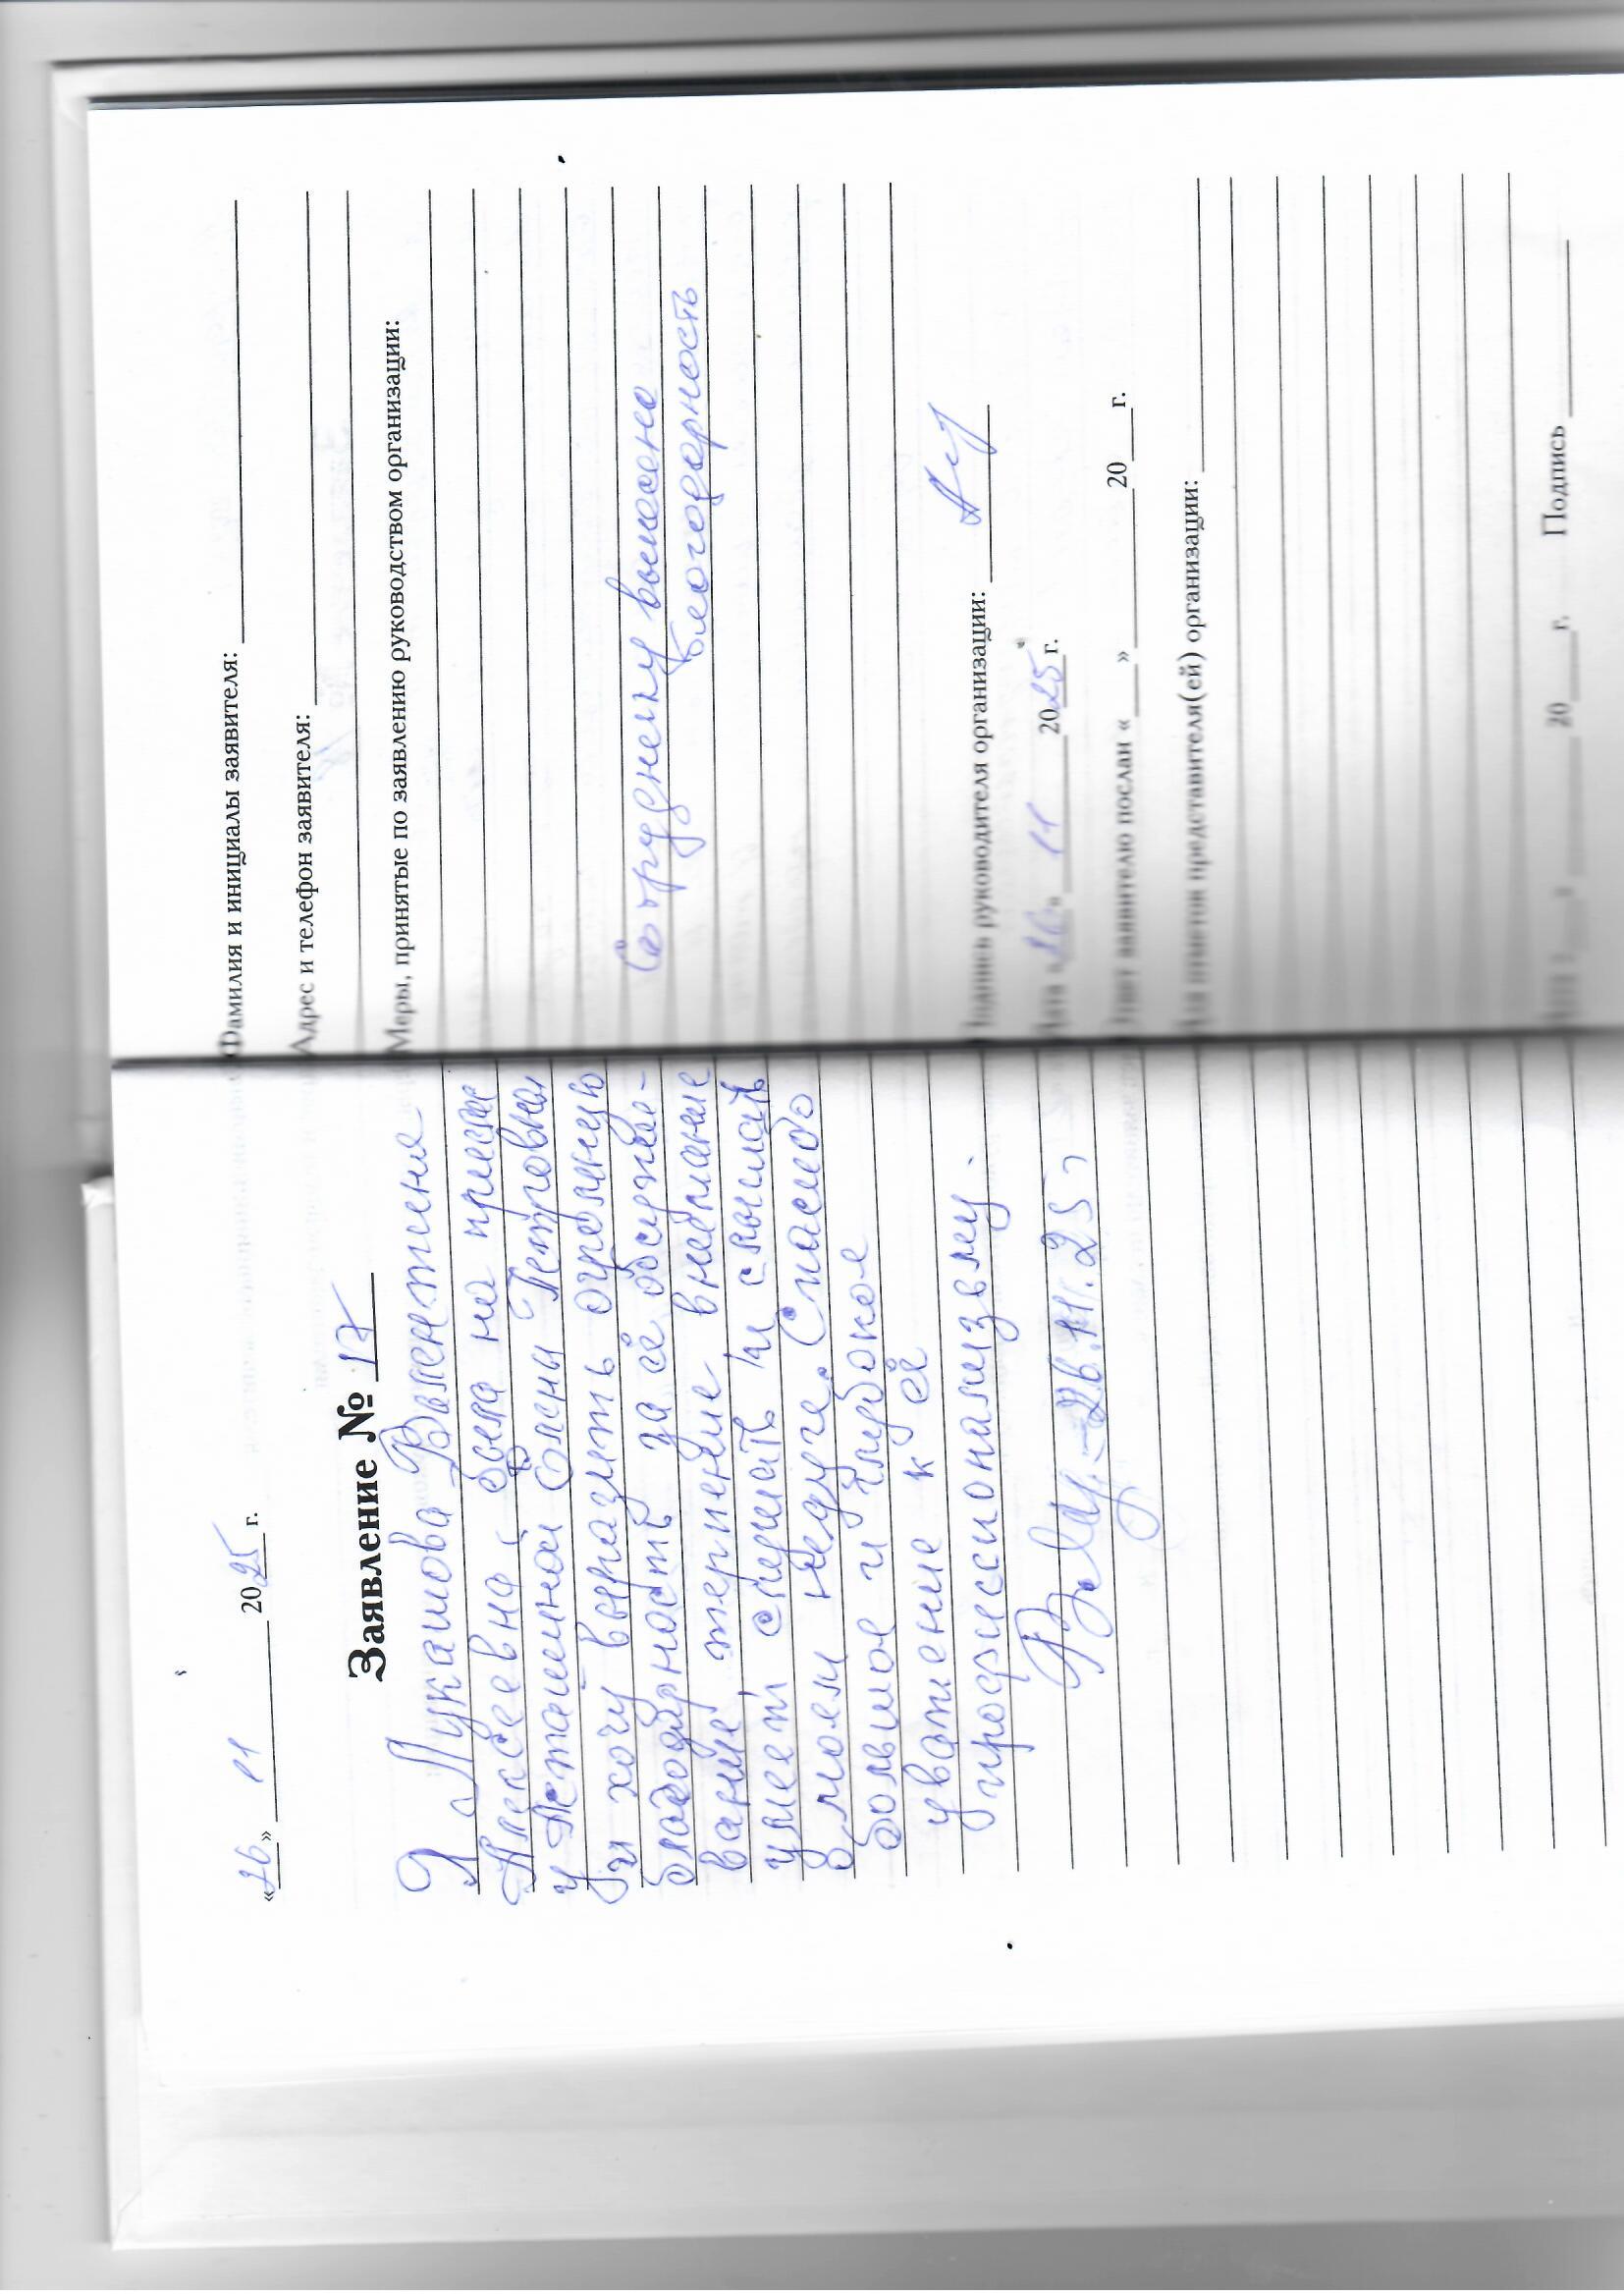 «26» 11 2025 г.
Заявление № 17
Я Лукашова Валентина
Алексеевна была на приеме
у Асташиной Елены Петровны
и хочу выразить огромную
благодарность за её обслужи-
вание, терпение внимание
умеет слушать и слышать
в моем недуге. Спасибо
большое и глубокое
уважение к её
профессионализму.
26.11.25 г
Фамилия и инициалы заявителя:
Адрес и телефон заявителя:
Меры, принятые по заявлению руководством организации:
Сотруднику вынесена
благодарность
Подпись руководителя организации:
Дата «26» 11 2025 г.
Ответ заявителю послан « » 20 г.
Для отметок представителя(ей) организации:
Дата « » 20 г. Подпись